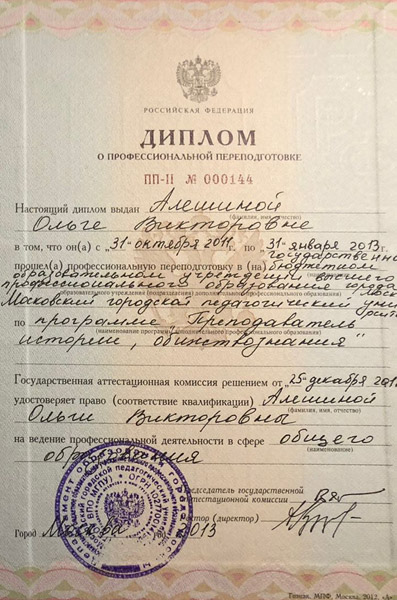 РОССИЙСКАЯ ФЕДЕРАЦИЯ
ДИПЛОМ
О ПРОФЕССИОНАЛЬНОЙ ПЕРЕПОДГОТОВКЕ
ПП-II № 000144
Настоящий диплом выдан Алешиной
(фамилия, имя, отчество)
Ольге Викторовне
в том, что он(а) с „31" октября 2011 по „31" января 2013г.
прошел(а) профессиональную переподготовку в (на) государственном бюджетном
образовательном учреждении высшего
профессионального образования города Москвы
(образовательного учреждения (подразделения) дополнительного профессионального образования)
Московский городской педагогический университет
по программе „Преподаватель
(наименование программы дополнительного профессионального образования)
истории, обществознания"
Государственная аттестационная комиссия решением от „25" декабря
удостоверяет право (соответствие квалификации) Алешиной
(фамилия, имя, отчество)
Ольги Викторовны
на ведение профессиональной деятельности в сфере общего
(наименование)
образования
Председатель государственной
аттестационной комиссии
Ректор (директор)
Город Москва 2013
Гознак, МПФ, Москва, 2012, «А»